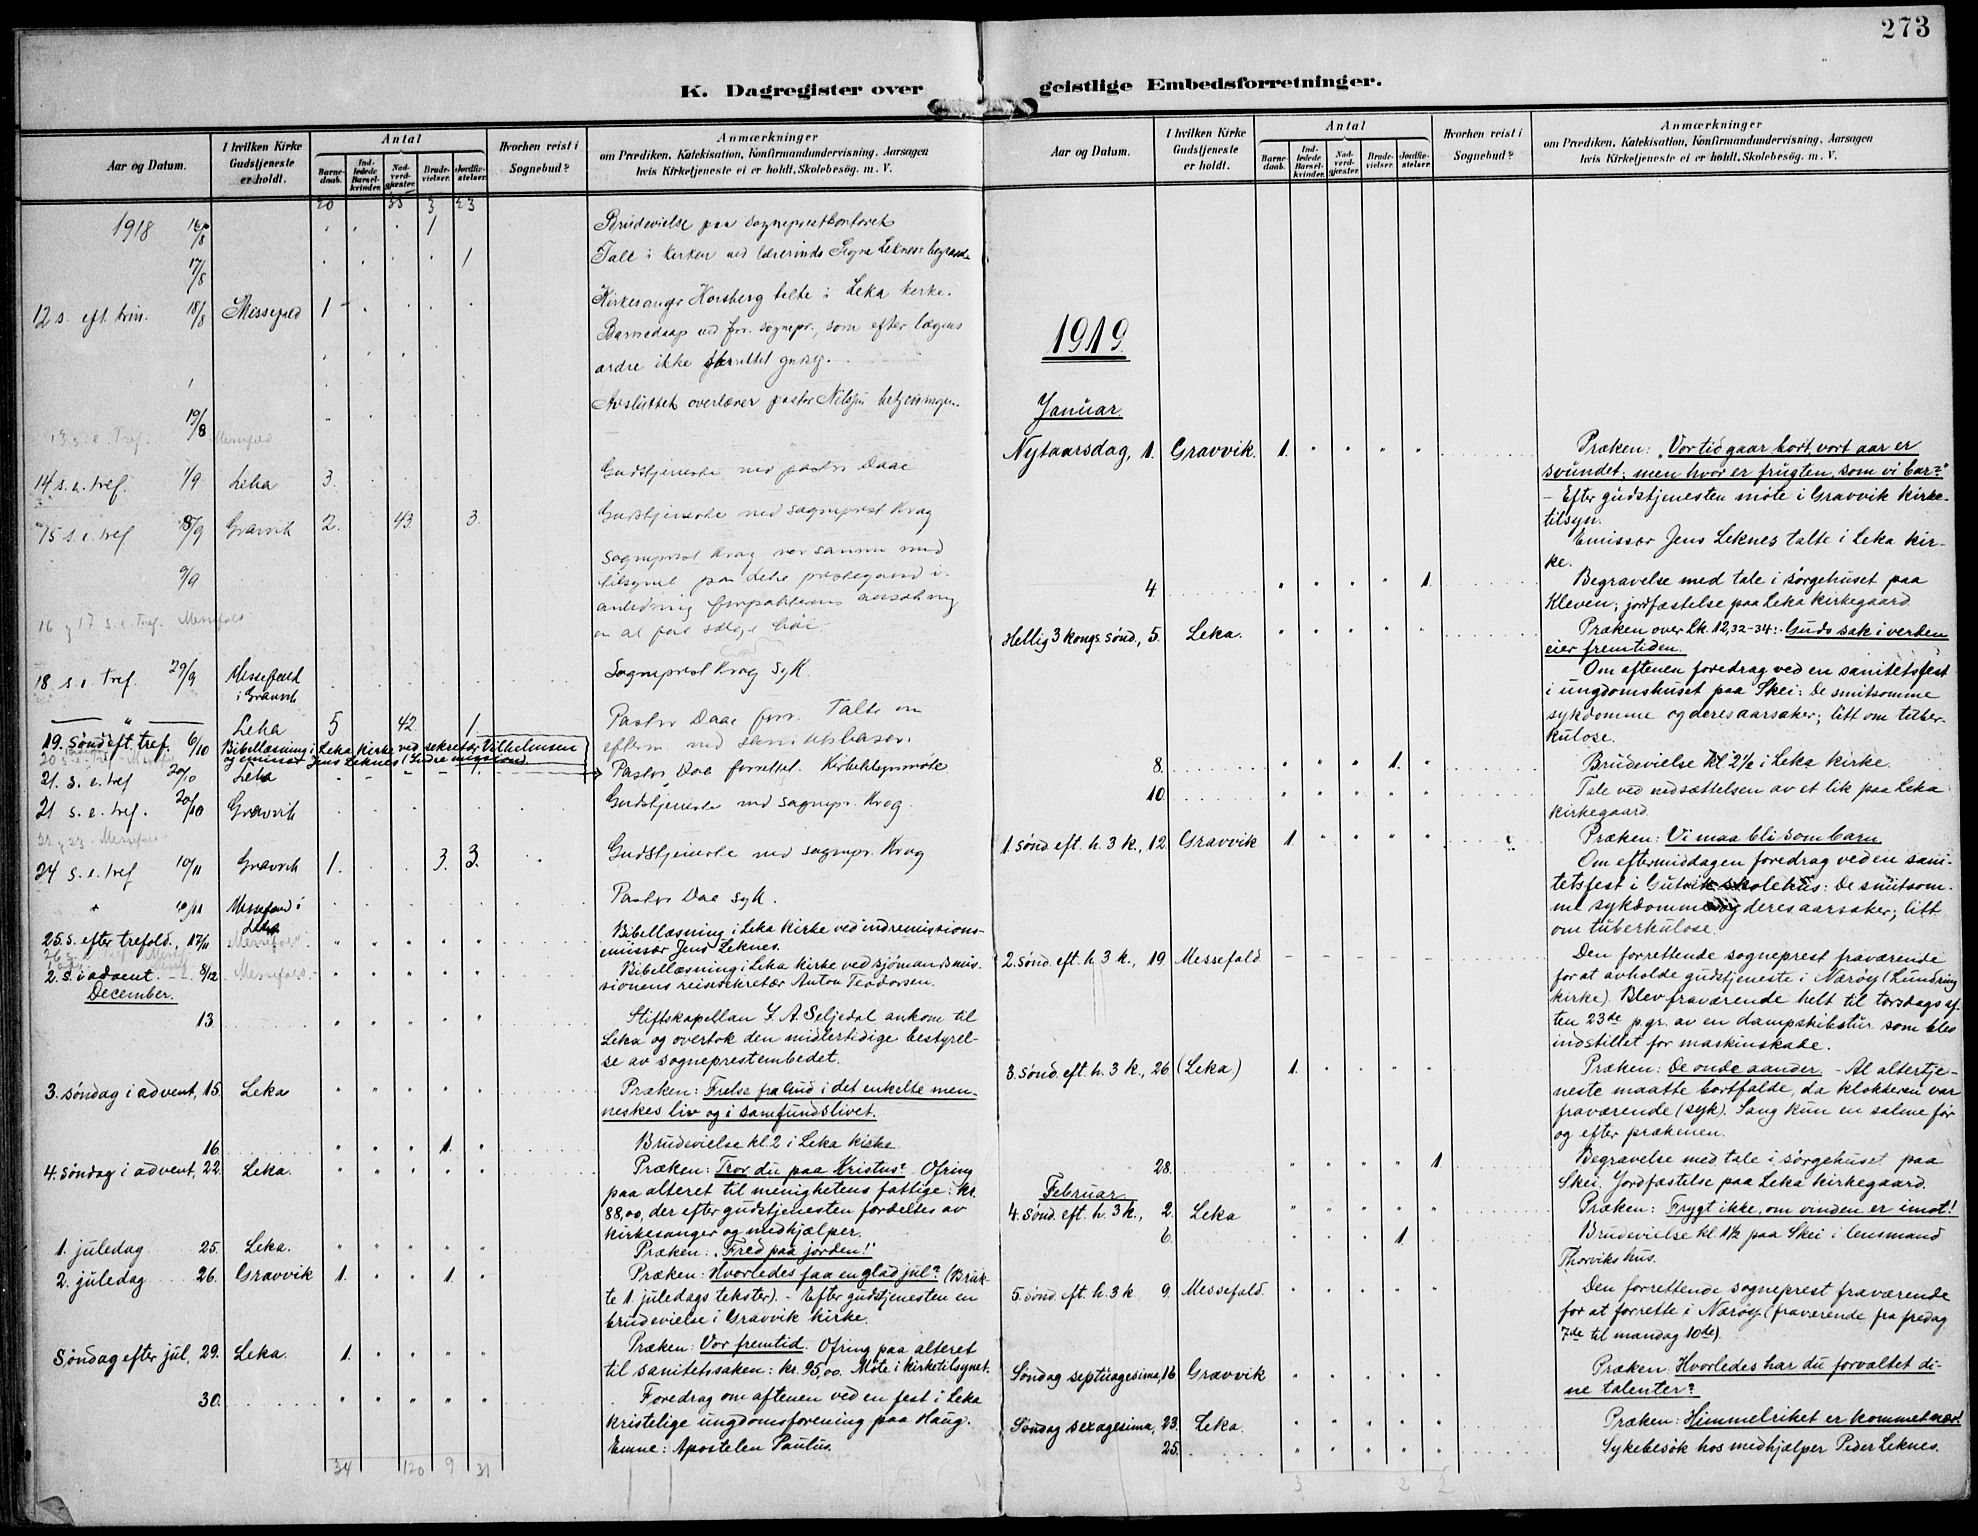 273
K. Dagregister over geistlige Embedsforretninger.
Aar og Datum.
I hvilken Kirke Gudstjeneste er holdt.
Antal
Barne-daab.
Ind-ledede Barsel-kvinder.
Nad-verd-gjester.
Brude-vielser.
Jordfæ-stelser.
Hvorhen reist i Sognebud?
Anmærkninger
om Prædiken, Katekisation, Konfirmandundervisning, Aarsagen
hvis Kirketjeneste ei er holdt, Skolebesøg. m. V.
20 35 3 23
1918 16/8 1 Brudevielse paa sogneprestkontoret
17/8 1 Tale i kirken ved lærerinde Signe Leknes begravelse
12 s. eft. trin. 18/8 Messefald 1 Kirkesanger Horsberg talte i Leka kirke.
Barnedaap ved forr. sognepr., som efter lægens
ordre ikke forrettet gudstj.
19/8 Avsluttet overlærer pastor Nilssen betjeningen.
13 s. e. tref. Messefald
14 s. e. tref. 1/9 Leka 3. Gudstjeneste ved pastor Daae
15 s. e. tref 8/9 Gravvik 2. 43. 3. Gudstjeneste ved sogneprest Krag
9/9 Sogneprest Krag var sammen med
tilsynet paa dette prestegaard i
anledning forpakterens ansøkning
om at faa sælge høi.
16 og 17 s. e. tref. Messefald
18 s. e. tref. 29/9 Messefald i Gravvik Sogneprest Krag syk.
" Leka 5 42 1. Pastor Daae forr. Talte om
efterm. ved sanitetsbasar.
19. søndag eft. tref. 6/10 Bibellæsning i Leka kirke ved sekretær Vilhelmsen
og emissær Jens Leknes (Indre mission)
21. s. e. tref 20/10 Leka Pastor Daae forrettet. Kirketilsynsmøte
21 s. e. tref. 20/10 Gravvik Gudstjeneste ved sognepr. Krag.
22 og 23. Messefald
24 s. e. tref 10/11 Gravvik 1. 3. 3. Gudstjeneste ved sognepr. Krag
" 10/11 Messefald i Leka Pastor Daae syk.
25. s. efter trefold., 17/11 Messefald Bibellæsning i Leka kirke ved indremissions-
emissær Jens Leknes.
2. s. i advent. 8/12 Messefald. Bibellæsning i Leka kirke ved sjømandsmis-
sionens reisesekretær Anton Teodorsen.
December.
13. Stiftskapellan J. A. Seljedal ankom til
Leka og overtok den midlertidige bestyrel-
se av sogneprestembedet.
3. søndag i advent, 15. Leka Præken: Frelse fra Gud i det enkelte men-
neskes liv og i samfundslivet.
16. 1. Brudevielse kl. 2 i Leka kirke
4. søndag i advent, 22. Leka. Præken: Tror du paa Kristus? Ofring
paa alteret til menighetens fattige: kr.
88,00, der efter gudstjenesten fordeltes av
kirkesanger og medhjælper.
1. juledag 25. Leka. Præken: „Fred paa jorden!"
2. juledag 26. Gravvik 1. 1. Præken: Hvorledes faa en glad jul? (Bruk-
te 1. juledags tekster). - Efter gudstjenesten en
brudevielse i Gravvik kirke.
Søndag efter jul, 29. Leka. 1. Præken: Vor fremtid. Ofring paa alteret
til sanitetssaken: kr. 95,00. Møte i kirketilsynet.
30. Foredrag om aftenen ved en fest i Leka
kristelige ungdomsforening paa Haug.
Emne: Apostelen Paulus.
34 120 9 31
Aar og Datum.
I hvilken Kirke Gudstjeneste er holdt.
Antal
Barne-daab.
Ind-ledede Barsel-kvinder.
Nad-verd-gjester.
Brude-vielser.
Jordfæ-stelser.
Hvorhen reist i Sognebud?
Anmærkninger
om Prædiken, Katekisation, Konfirmandundervisning, Aarsagen
hvis Kirketjeneste ei er holdt, Skolebesøg. m. V.
1919.
Januar
Nytaarsdag, 1. Gravvik. 1. Præken: „Vor tid gaar bort, vort aar er
svundet; men hvor er frugten, som vi bar?"
- Efter gudstjenesten møte i Gravvik kirke-
tilsyn.
Emissær Jens Leknes talte i Leka kir-
ke.
4. 1. Begravelse med tale i sørgehuset paa
Kleven; jordfæstelse paa Leka kirkegaard.
Hellig 3 kongs. sønd., 5. Leka. Præken over Lk. 12, 32-34: Guds sak i verden
eier fremtiden.
Om aftenen foredrag ved en sanitetsfest
i ungdomshuset paa Skei: De smitsomme
sykdomme og deres aarsaker; litt om tuber-
kulose.
8. 1. Brudevielse kl. 2½ i Leka kirke.
10. Tale ved nedsættelsen av et lik paa Leka
kirkegaard.
1. sønd. eft. h. 3 k., 12. Gravvik 1. Præken: Vi maa bli som barn
Om eftermiddagen foredrag ved en sani-
tetsfest i Gutvik skolehus: De smitsom-
me sykdomme og deres aarsaker; litt
om tuberkulose.
2. sønd. eft. h. 3 k., 19 Messefald Den forrettende sogneprest fraværende
for at avholde gudstjeneste i Nærøy (Lundring
kirke). Blev fraværende helt til torsdags af-
ten 23de p. gr. av en dampskibstur som blev
indstillet for maskinskade.
3. sønd. eft. h. 3 k., 26 (Leka) 1. Præken: De onde aander. - Al altertje-
neste maatte bortfalde, da klokkeren var
fraværende (syk). Sang kun en salme før
og efter prækenen.
28. 1. Begravelse med tale i sørgehuset paa
Skei. Jordfæstelse paa Leka kirkegaard.
Februar
4. sønd. eft. h. 3 k., 2. Leka Præken: Frygt ikke, om vinden er imot!
6. 1. Brudevielse kl. 1½ paa Skei i lensmand
Thorviks hus.
5. sønd. eft. h. 3 k. 9. Messefald. Den forrettende sogneprest fraværende
for at forrette i Nærøy (fraværende fra fredag
7de til mandag 10de).
Søndag septuagesima, 16 Gravvik Præken: Hvorledes har du forvaltet di-
ne talenter?
Søndag sexagesima, 23. Leka. Præken: Himmelriket er kommet nær!
25. Sykebesøk hos medhjælper Peder Leknes.
3 2 2